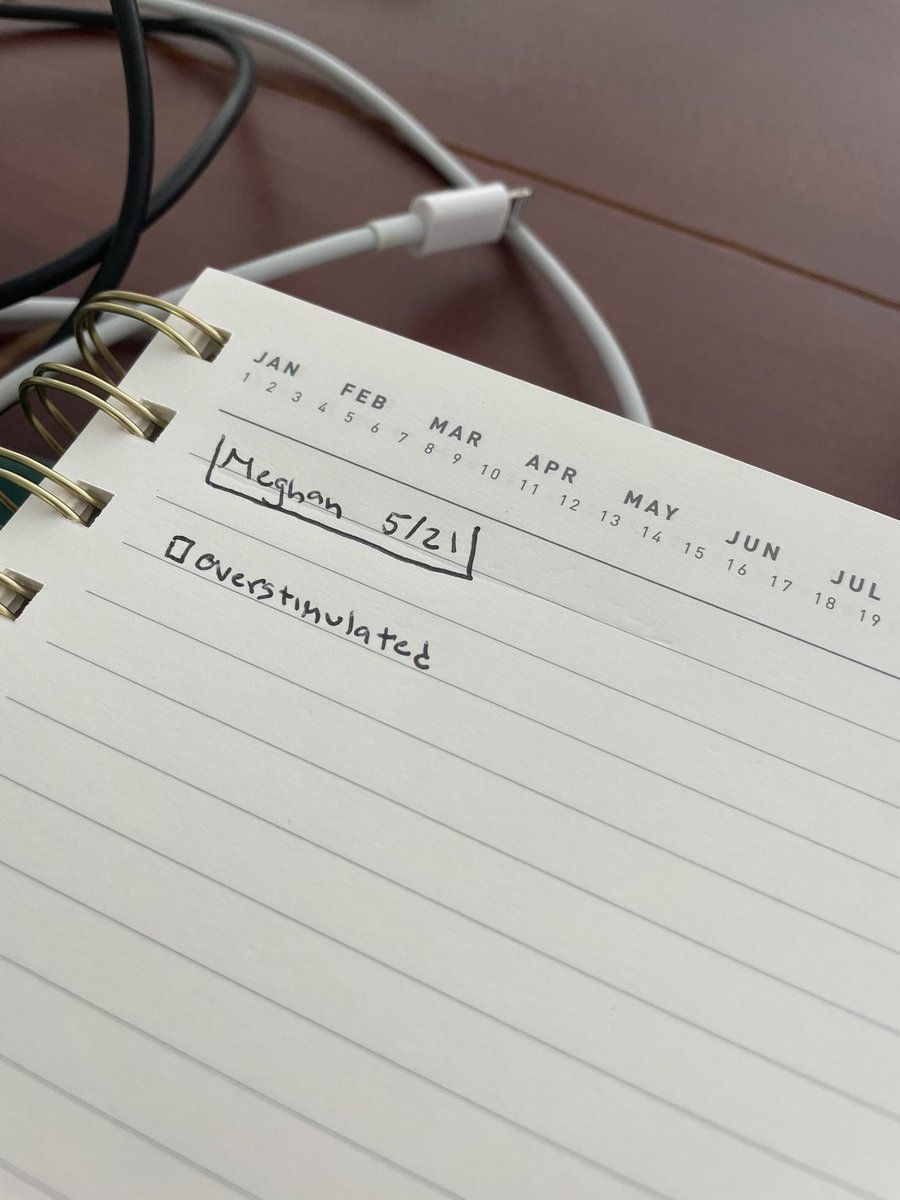 JAN FEB MAR APR MAY JUN JUL
1 2 3 4 5 6 7 8 9 10 11 12 13 14 15 16 17 18 19
Meghan 5/21
overstimulated